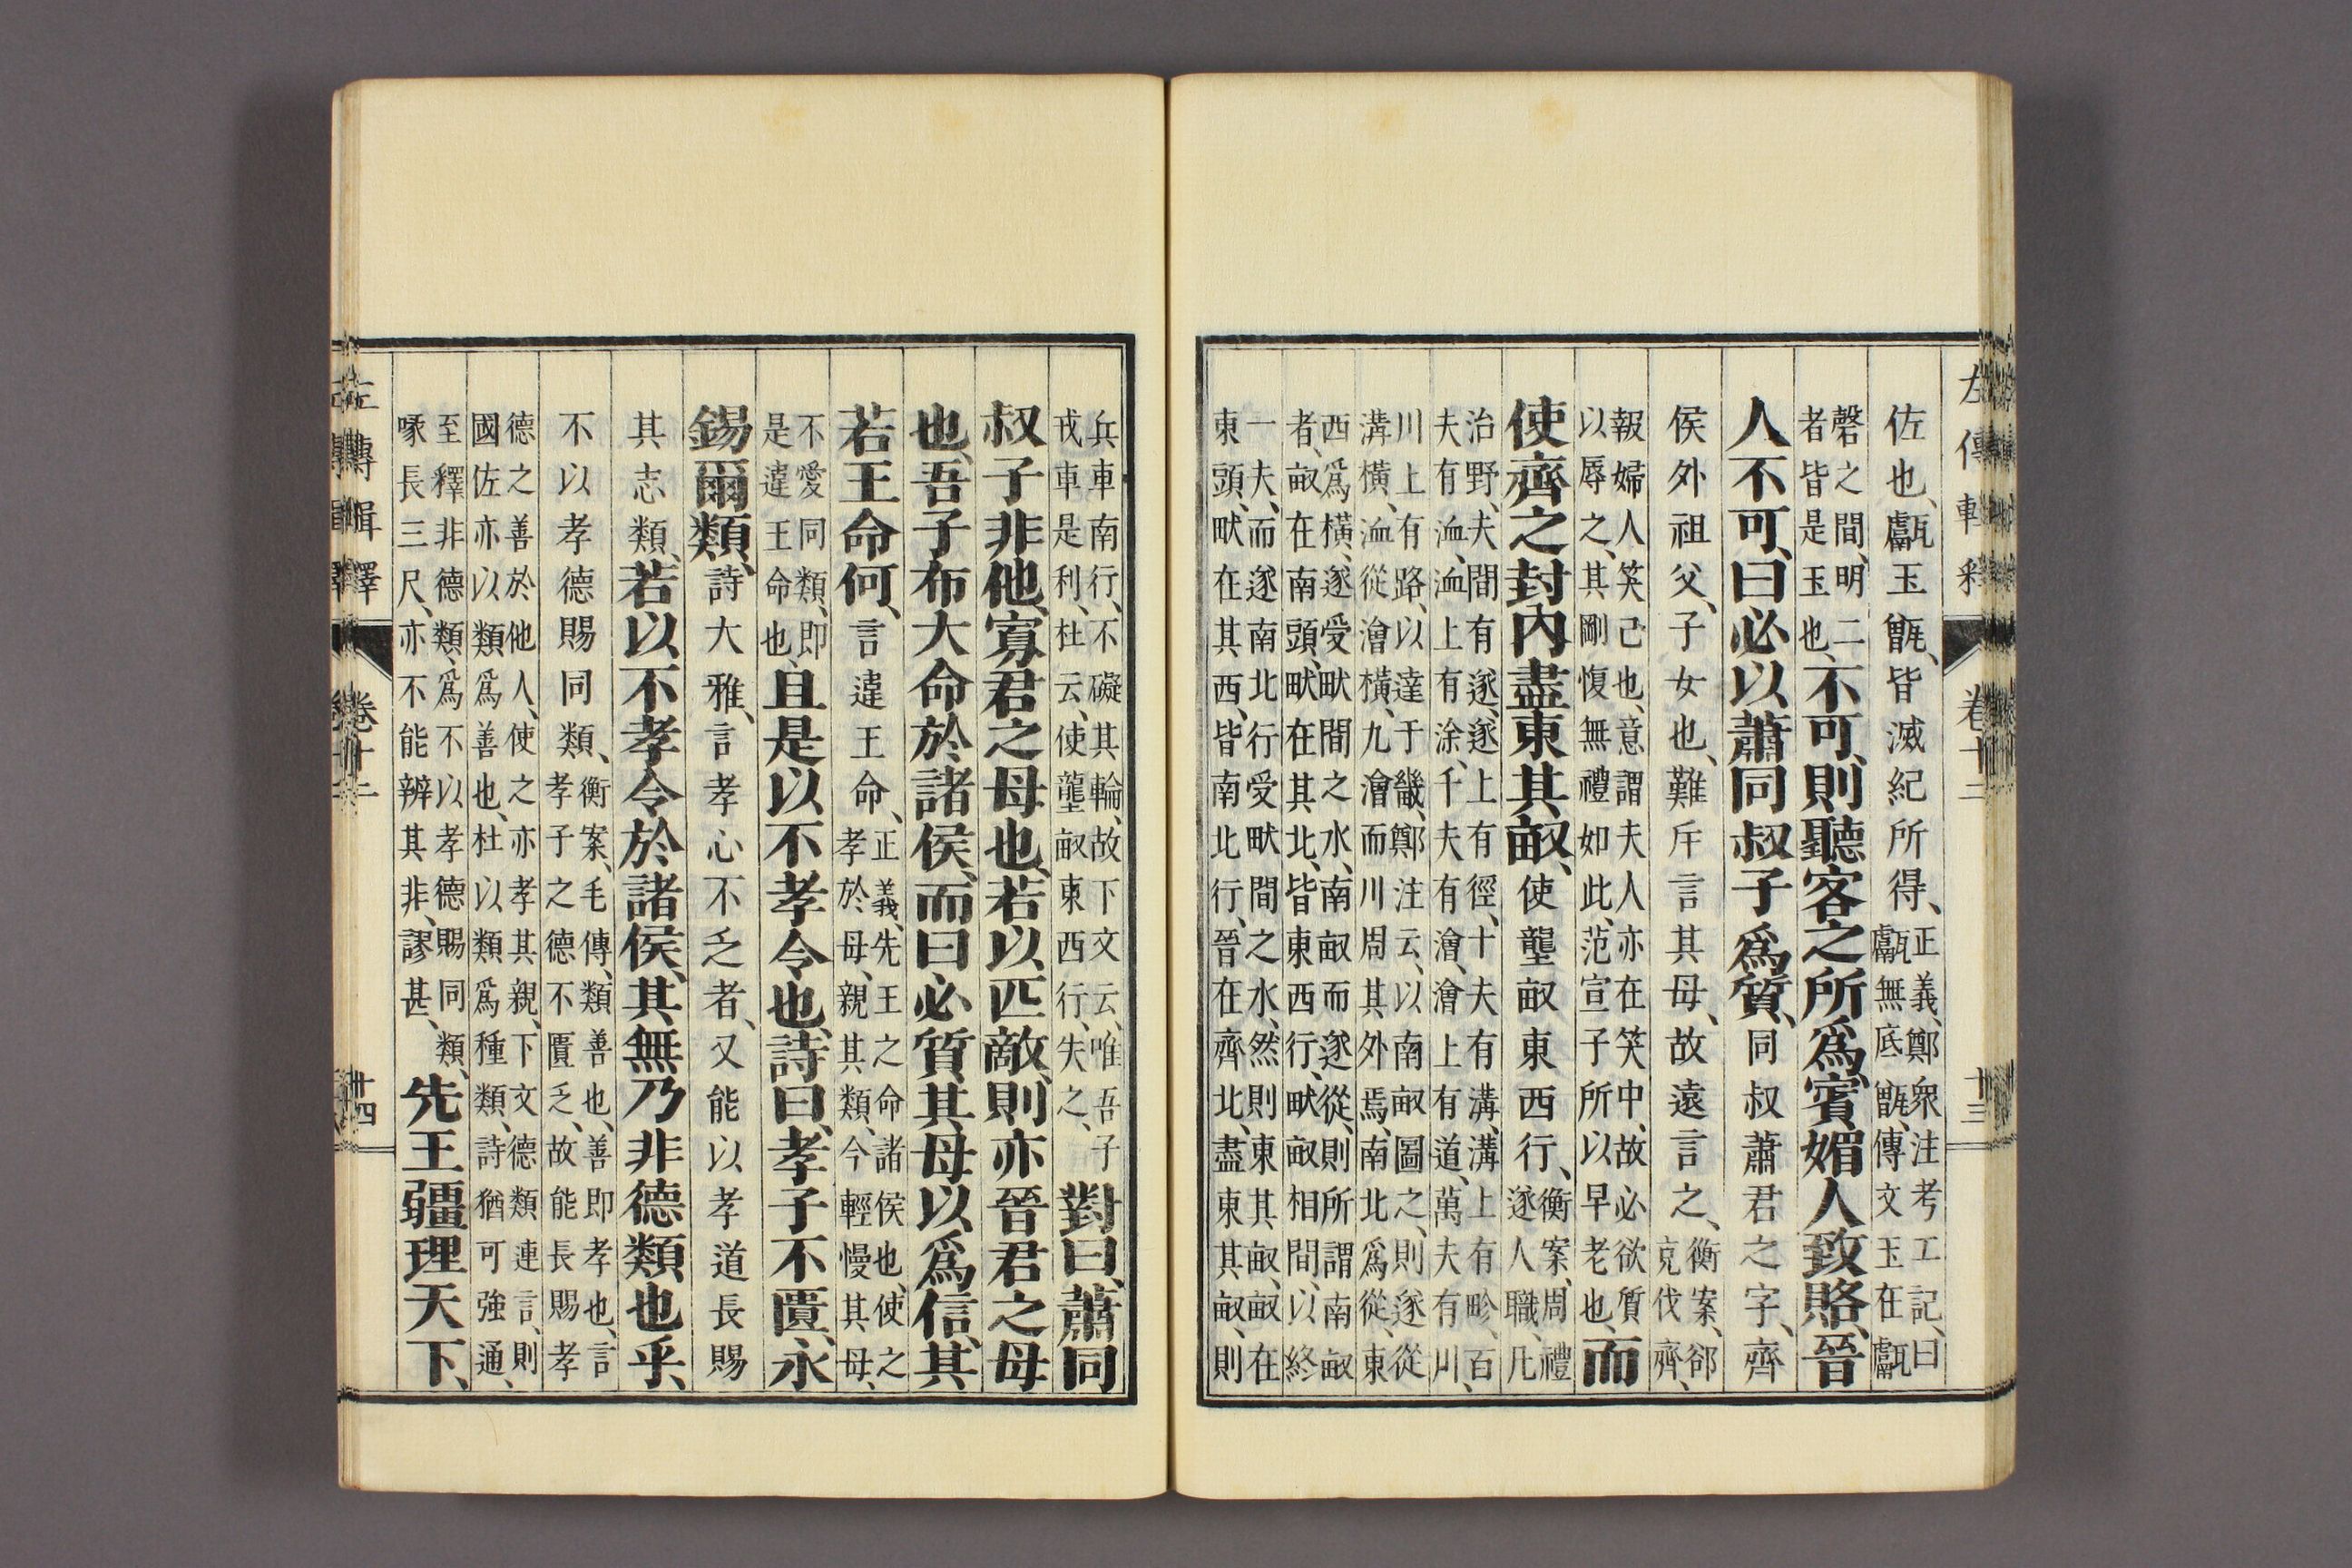 左傳輯釋 卷十二 十三
佐也、甗玉甑、皆滅紀所得、
正義、鄭衆注考工記、曰
甗無底甑、傳文玉在甗
磬之間、明二
者皆是玉也、
不可、則聽客之所爲、賓媚人致賂、晉
人不可、曰必以蕭同叔子爲質、同叔蕭君之字、齊
侯外祖父、子女也、難斥言其母、故遠言之、
衡案、郤
克伐齊、
報婦人笑己也、意謂夫人亦在笑中、故必欲質
以辱之、其剛愎無禮如此、范宣子所以早老也、
而
使齊之封內盡東其畝、使壟畝東西行、
衡案、周禮
遂人職、凡
治野、夫間有遂、遂上有徑、十夫有溝、溝上有畛、百
夫有洫、洫上有涂、千夫有澮、澮上有道、萬夫有川、
川上有路、以達于畿、鄭注云、以南畝圖之、則遂從
溝橫、洫從澮橫、九澮而川周其外焉、南北爲從、東
西爲橫、遂受畎間之水、南畝而遂從、則所謂南畝
者、畝在南頭、畎在其北、皆東西行、畎畝相間、以終
一夫、而遂南北行受畎間之水、然則東其畝、畝在
東頭、畎在其西、皆南北行、晉在齊北、盡東其畝、則
兵車南行、不礙其輪、故下文云、唯吾子
戎車是利、杜云、使壟畝東西行、失之、
對曰、蕭同
叔子非他、寡君之母也、若以匹敵、則亦晉君之母
也、吾子布大命於諸侯、而曰必質其母以爲信、其
若王命何、言違王命、
正義、先王之命諸侯也、使之
孝於母、親其類、今輕慢其母、
不愛同類、即
是違王命也、
且是以不孝令也、詩曰、孝子不匱、永
錫爾類、詩大雅、言孝心不乏者、又能以孝道長賜
其志類、若以不孝令於諸侯、其無乃非德類也乎、
不以孝德賜同類、
衡案、毛傳、類善也、善即孝也、言
孝子之德不匱乏、故能長賜孝
德之善於他人、使之亦孝其親、下文德類連言、則
國佐亦以類爲善也、杜以類爲種類、詩猶可強通、
至釋非德類、爲不以孝德賜同類、
喙長三尺、亦不能辨其非、謬甚、
先王疆理天下、
左傳輯釋 卷十二 十四